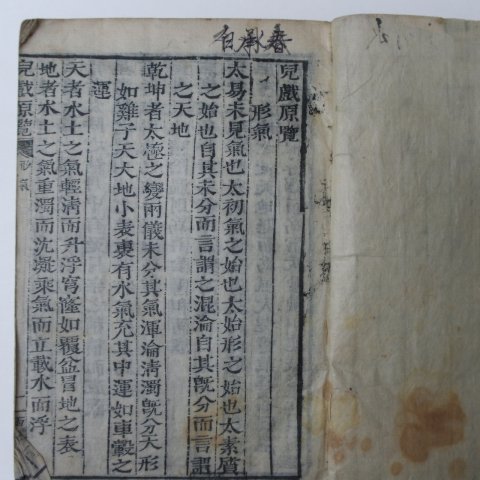 白承春
兒戲原覽
形氣
太易未見氣也太初氣之始也太始形之始也太素質
之始也自其未分而言謂之混淪自其旣分而言謂
之天地
乾坤者太極之變兩儀未分其氣渾淪淸濁旣分天形
如雞子天大地小表裏有水氣充其中運如車轂之
運
天者水土之氣輕淸而升浮穹窿如覆盆冒地之表
地者水土之氣重濁而沉凝乘氣而立載水而浮
兒戲原覽 形氣 一